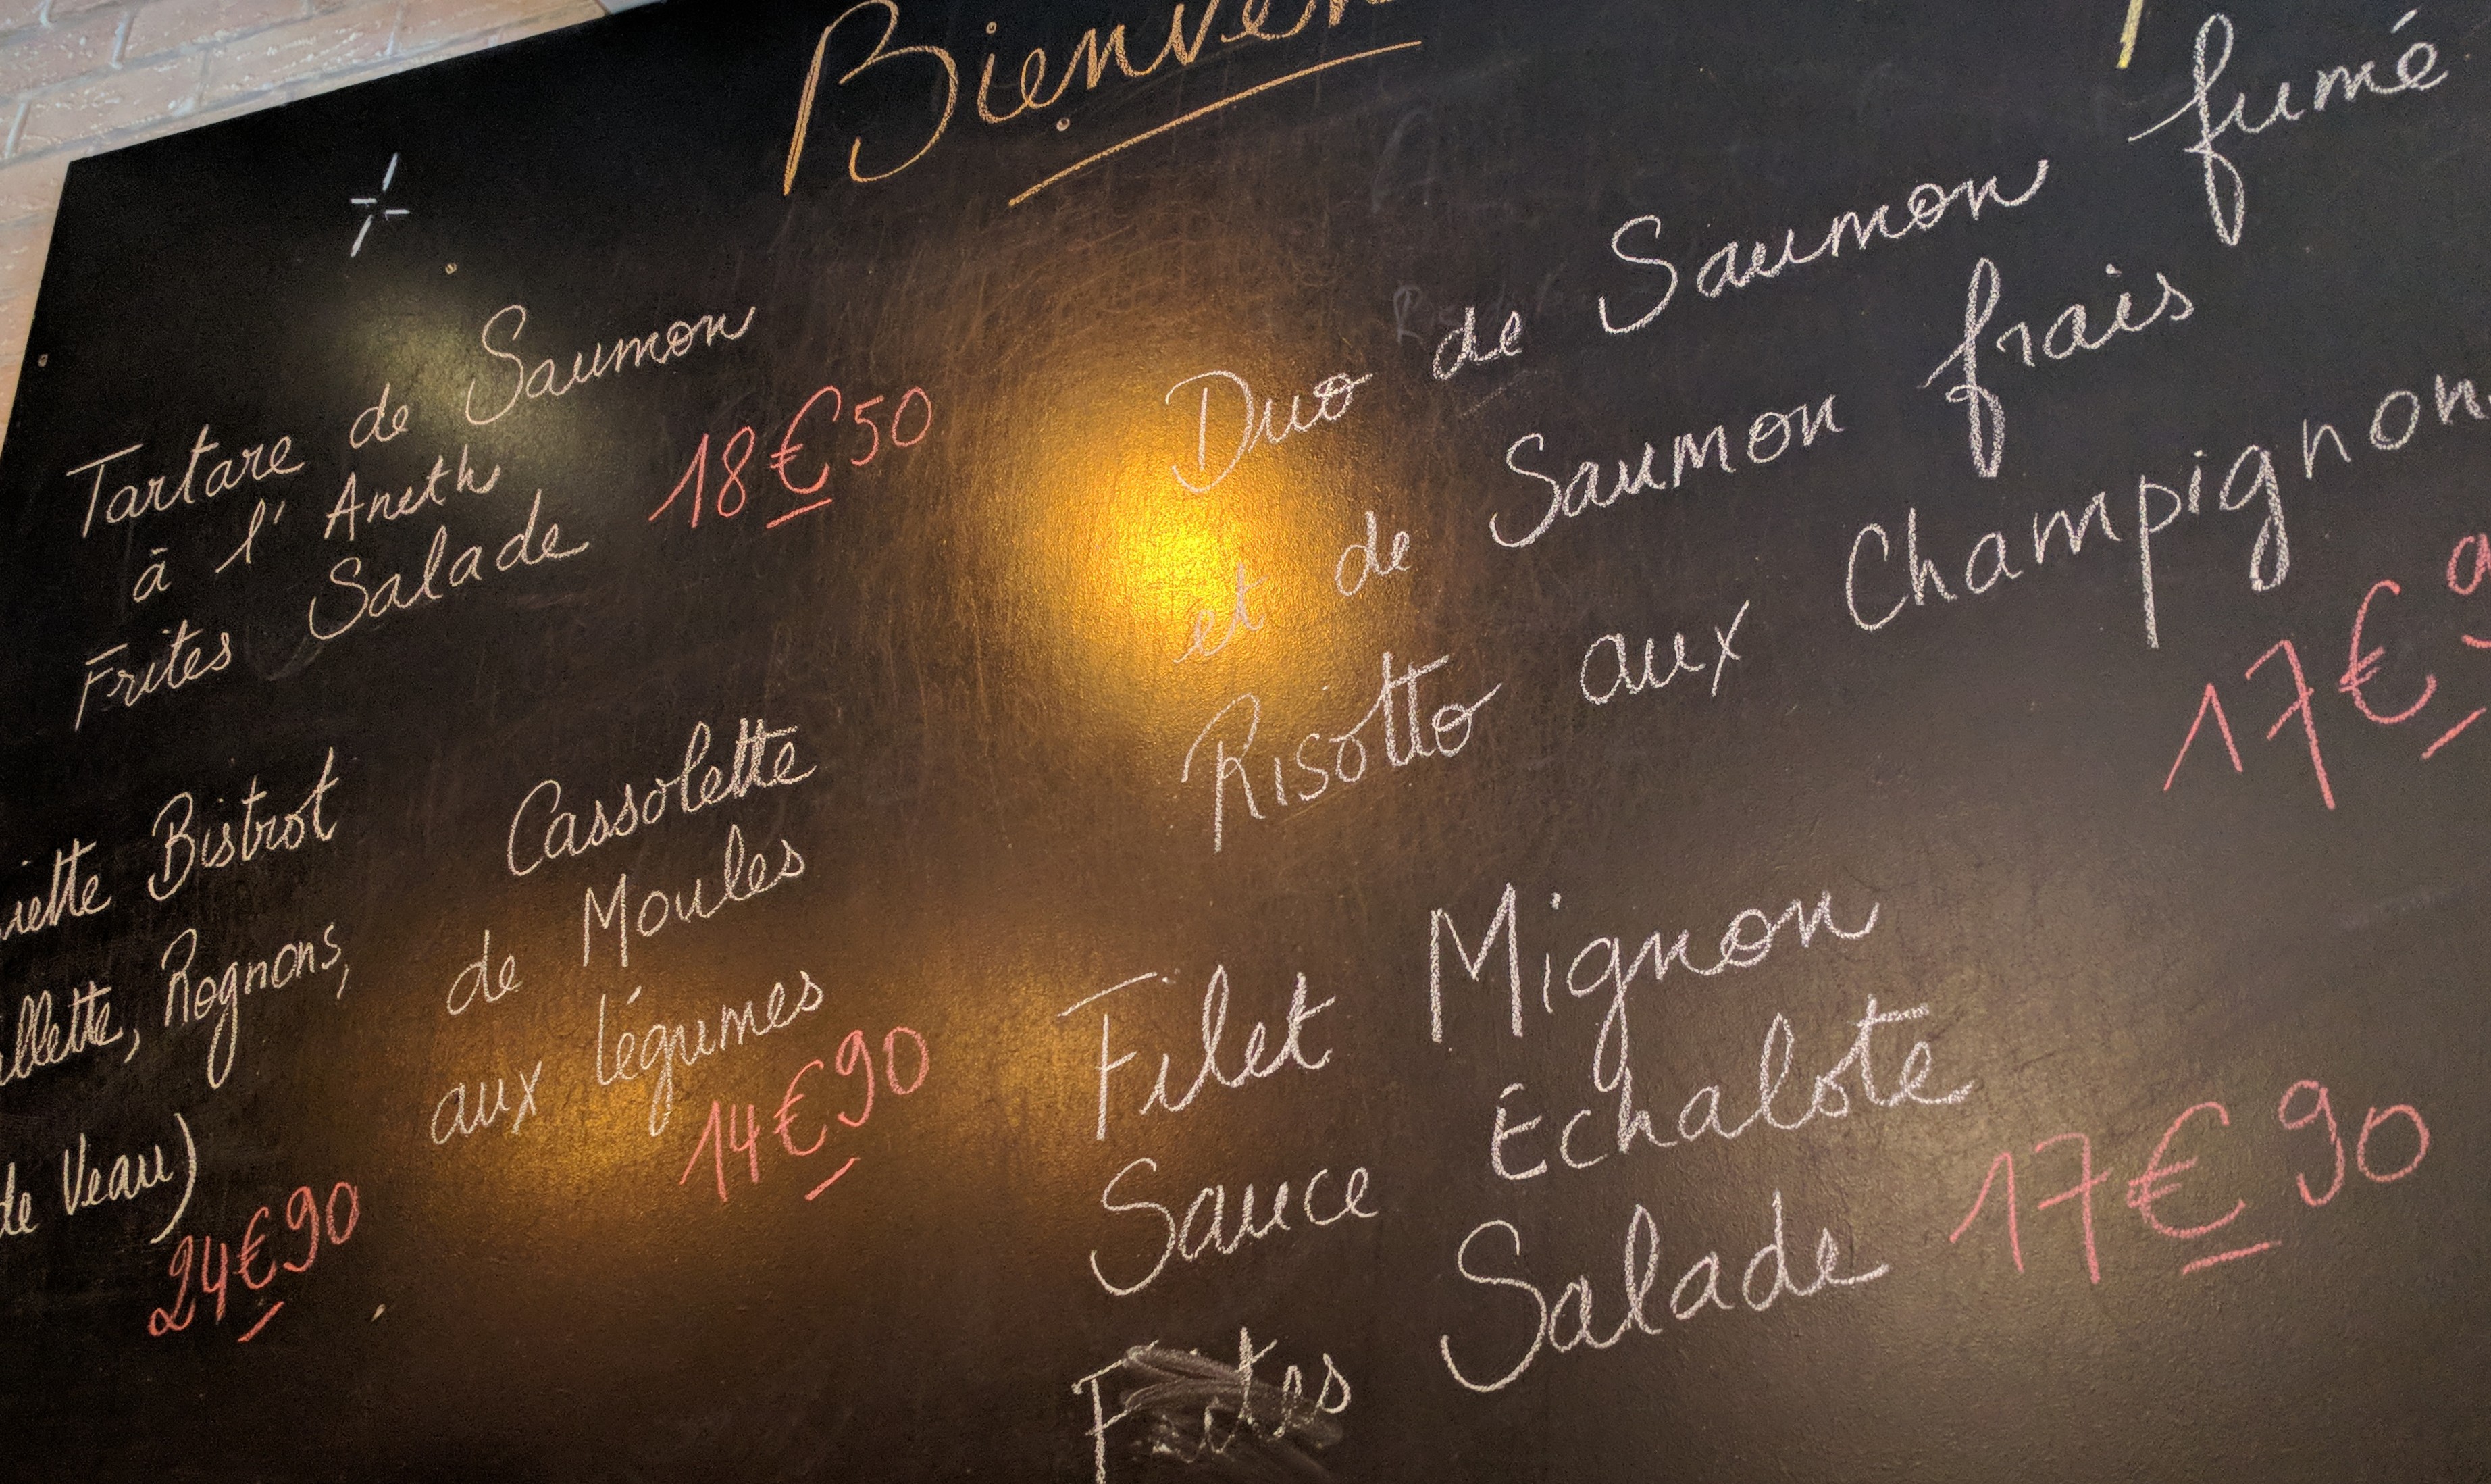 Tartare de Saumon
à l' Aneth
Frites Salade 18€50
Bistrot
Rognons,
de Veau)
24€90
Cassolette
de Moules
aux légumes
14€90
Duo de Saumon fumé
et de Saumon frais
Risotto aux Champignon
17€
Filet Mignon
Sauce Échalote
Frites Salade 17€90